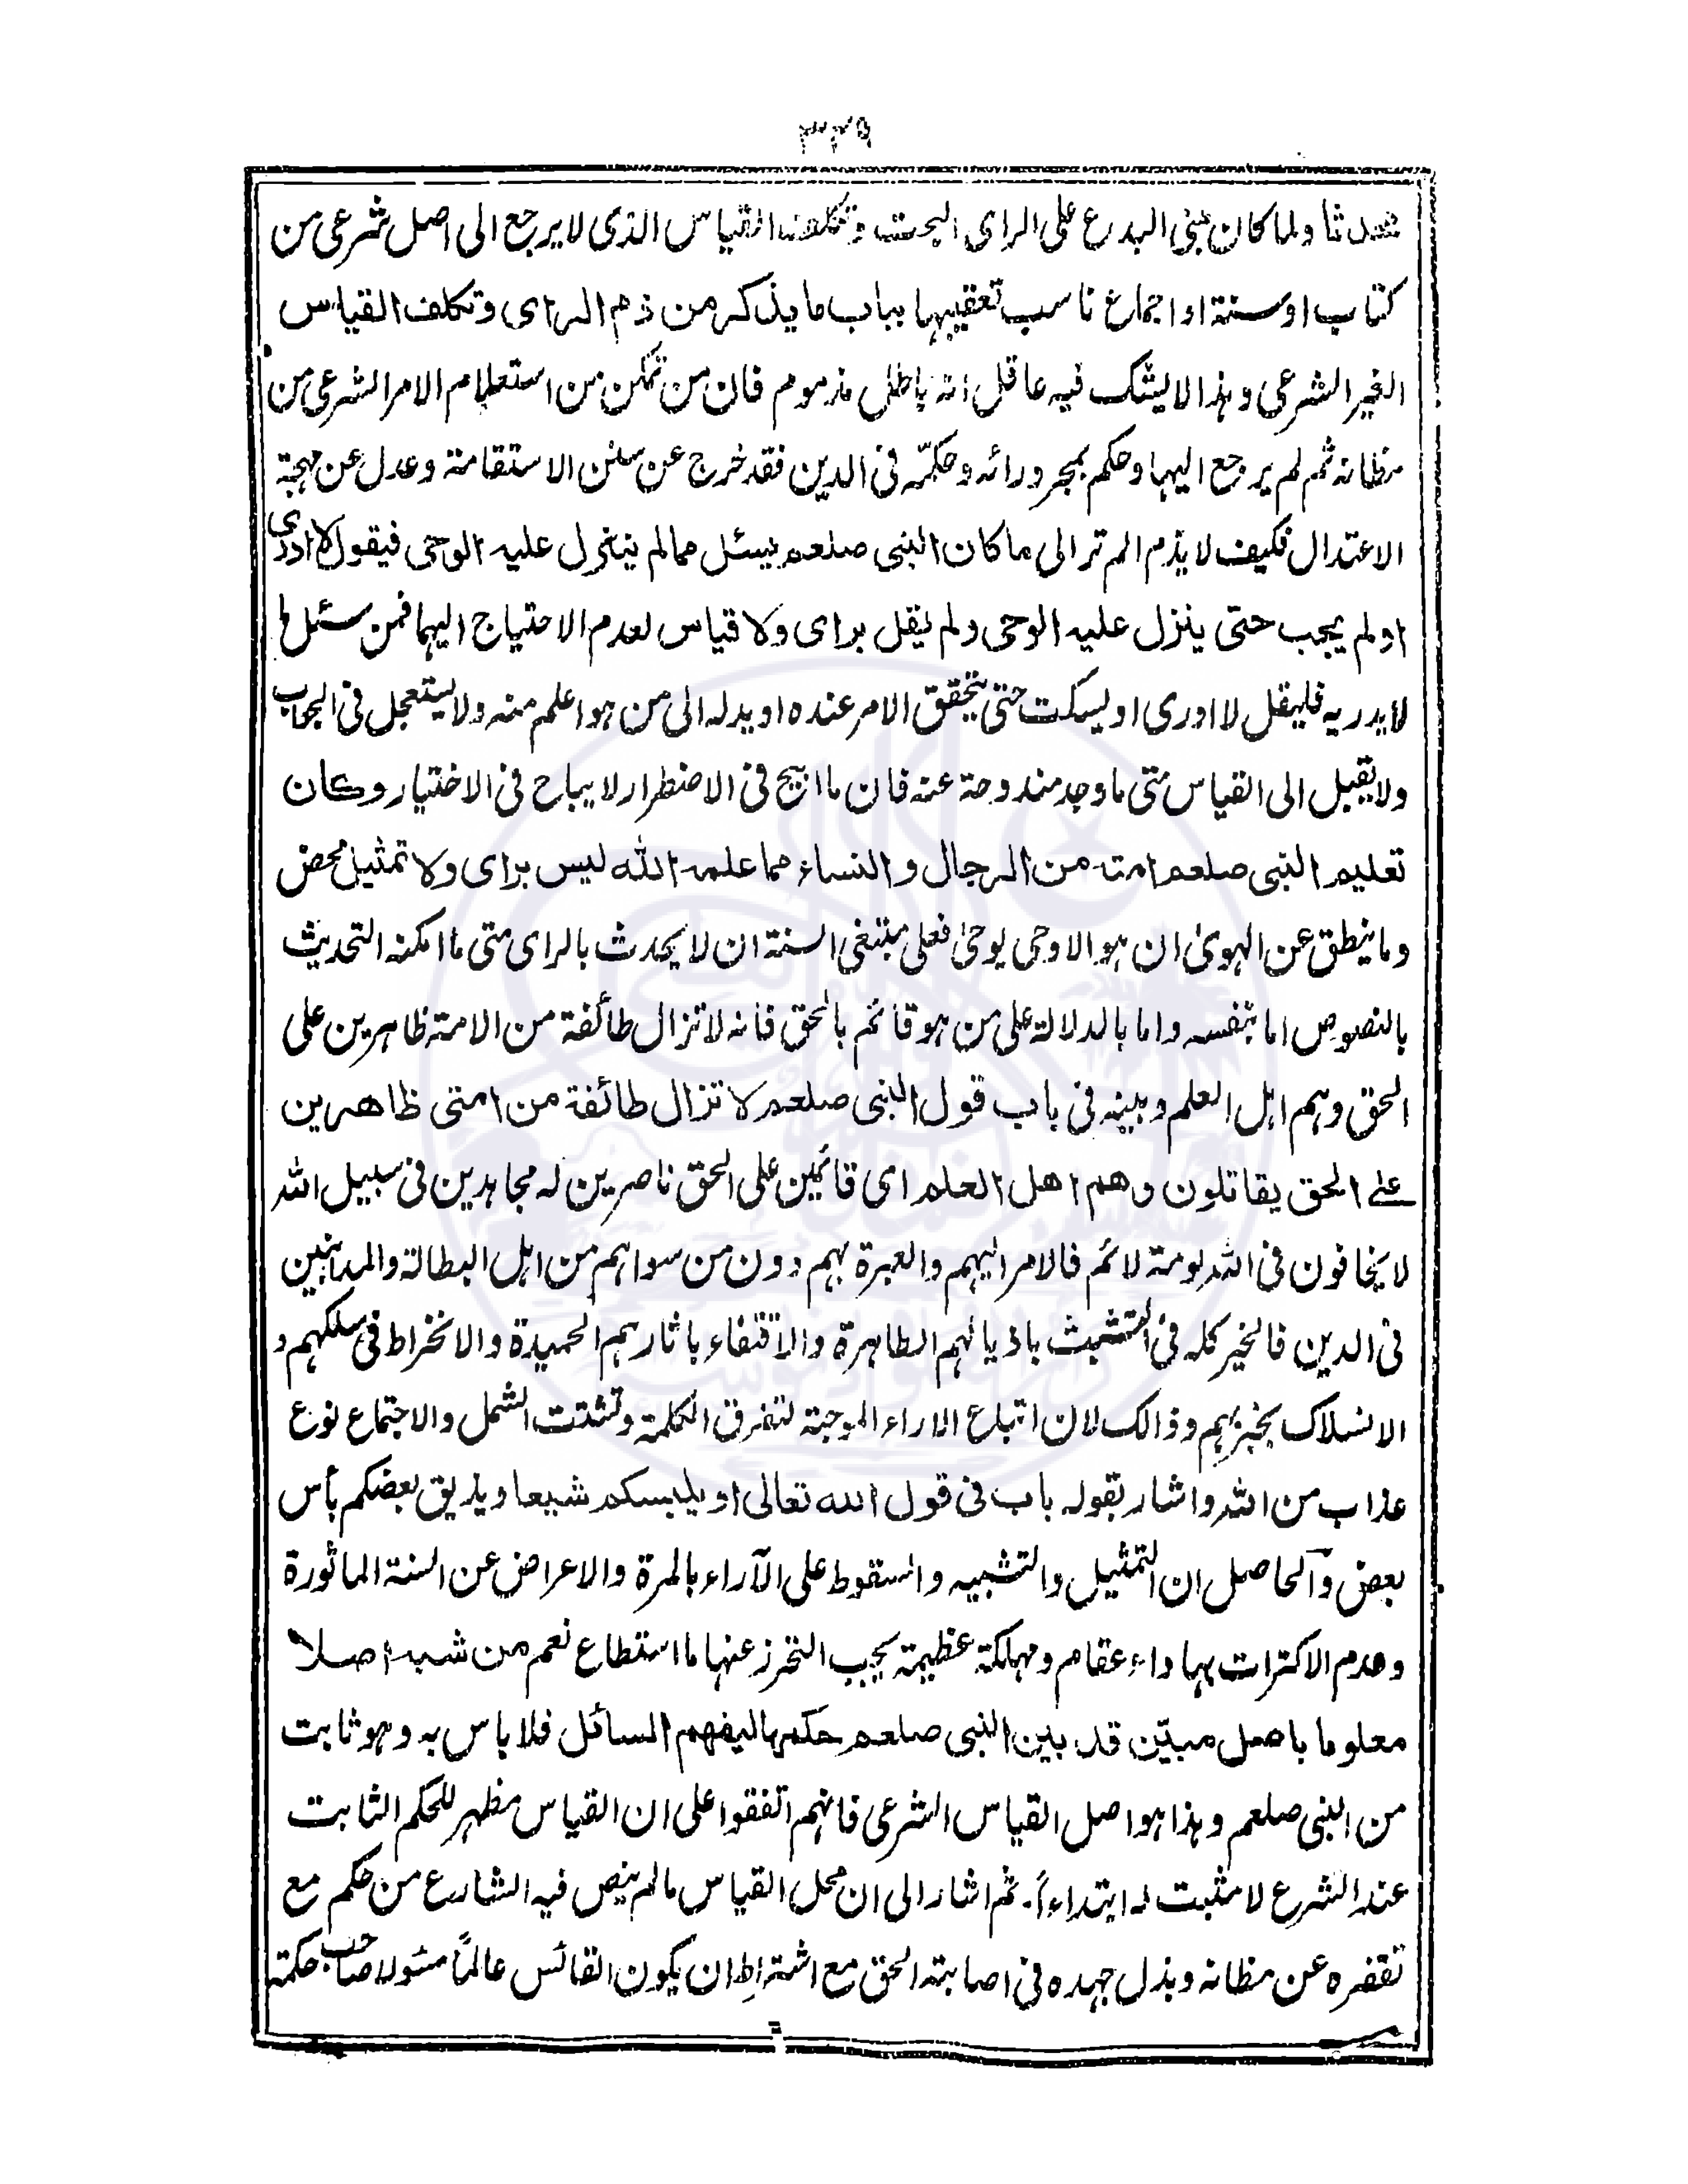 ۳۲۹
محدثا ولما كان مبنى البدع على الراى البحت وتكلف القياس الذى لا يرجع الى اصل شرعى من
كتاب او سنة او اجماع ناسب تعقيبها بباب ما يذكر من ذم الراى وتكلف القياس
الغير الشرعى وهذا لا يشك فيه عاقل انه باطل مذموم فان من تمكن من استعلام الامر الشرعى من
مظانه ثم لم يرجع اليها وحكم بمجرد رائه وحكمه فى الدين فقد خرج عن سنن الاستقامة وعدل عن مهجة
الاعتدال فكيف لا يذم الم تر الى ما كان النبى صلعم يسئل مما لم ينزل عليه الوحى فيقول لا ادرى
او لم يجب حتى ينزل عليه الوحى ولم يقل براى ولا قياس لعدم الاحتياج اليهما فمن سئل لما
لا يدريه فليقل لا ادرى او ليسكت حتى يتحقق الامر عنده او يدله الى من هو اعلم منه ولا يستعجل فى الجواب
ولا يقبل الى القياس متى ما وجد مندوحة عنه فان ما ابيح فى الاضطرار لا يباح فى الاختيار وكان
تعليم النبى صلعم امته من الرجال والنساء مما علمه الله ليس براى ولا تمثيل محض
وما ينطق عن الهوىٰ ان هو الا وحى يوحىٰ فعلى مبتغى السنة ان لا يحدث بالراى متى ما امكنه التحديث
بالنصوص اما بنفسه واما بالدلالة على من هو قائم بالحق فانه لا تزال طائفة من الامة ظاهرين على
الحق وهم اهل العلم وبينه فى باب قول النبى صلعم لا تزال طائفة من امتى ظاهرين
علے الحق يقاتلون وهم اهل العلم اى قائمين على الحق ناصرين له مجاهدين فى سبيل الله
لا يخافون فى الله لومة لائم فالامر اليهم والعبرة بهم دون من سواهم من اهل البطالة والمداهنين
فى الدين فالخير كله فى التشبث باذيالهم الطاهرة والاقتفاء باثارهم الحميدة والانخراط فى سلكهم و
الانسلاك بخبزهم وذالك لان اتباع الاراء الموجبة لتفرق الكلمة وتشتت الشمل والاجتماع نوع
عذاب من الله واشار بقوله باب فى قول الله تعالى او يلبسكم شيعا ويذيق بعضكم بأس
بعض وآلحاصل ان التمثيل والتشبيه والسقوط على الآراء بالمرة والاعراض عن السنة الماثورة
وعدم الاكترات بها داء عقام ومهلكة عظيمة يجب التحرز عنها ما استطاع نعم من شبه اصلا
معلوما باصل مبيّن قد بين النبى صلعم حكمها ليفهم السائل فلا باس به وهو ثابت
من النبى صلعم وهذا هو اصل القياس الشرعى فانهم اتفقوا على ان القياس مظهر للحكم الثابت
عند الشرع لا مثبت له ابتداءاً. ثم اشار الى ان محل القياس ما لم ينص فيه الشارع من حكم مع
تقفره عن مظانه وبذل جهده فى اصابته الحق مع اشتراط ان يكون القائس عالماً مسئولا صاحب حكمة